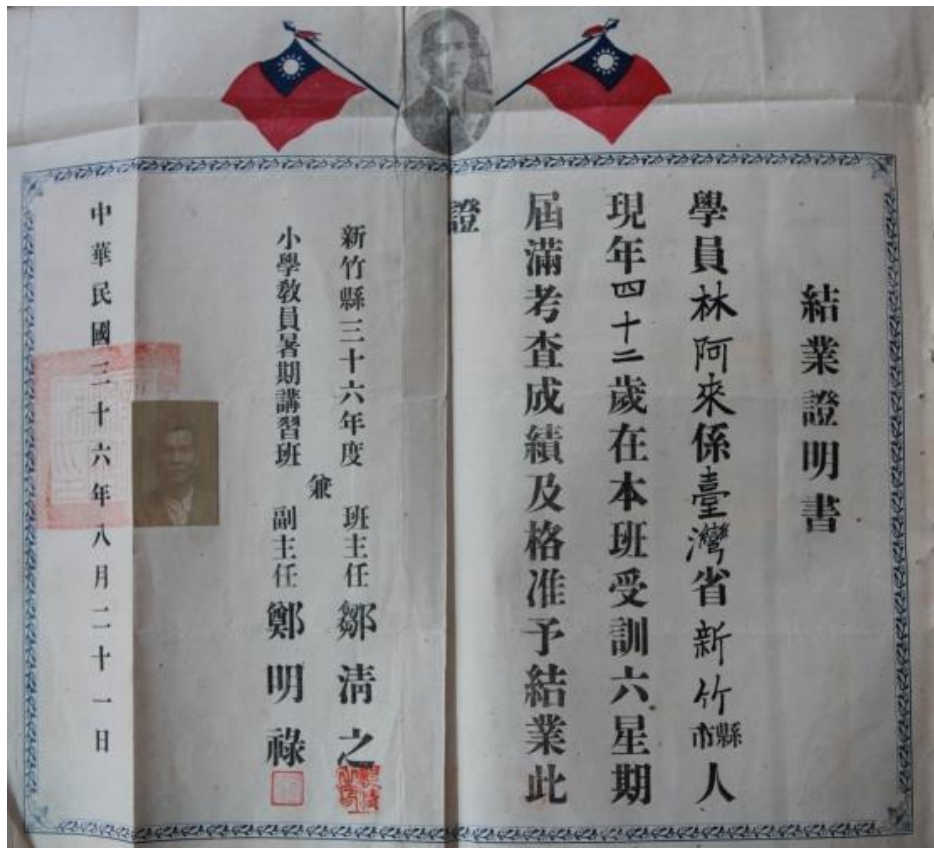 結業證明書
學員林阿來係臺灣省新竹縣市人
現年四十二歲在本班受訓六星期
屆滿考查成績及格准予結業此
證
新竹縣三十六年度
小學教員暑期講習班
兼
班主任鄒清之
副主任鄭明祿
中華民國三十六年八月二十一日